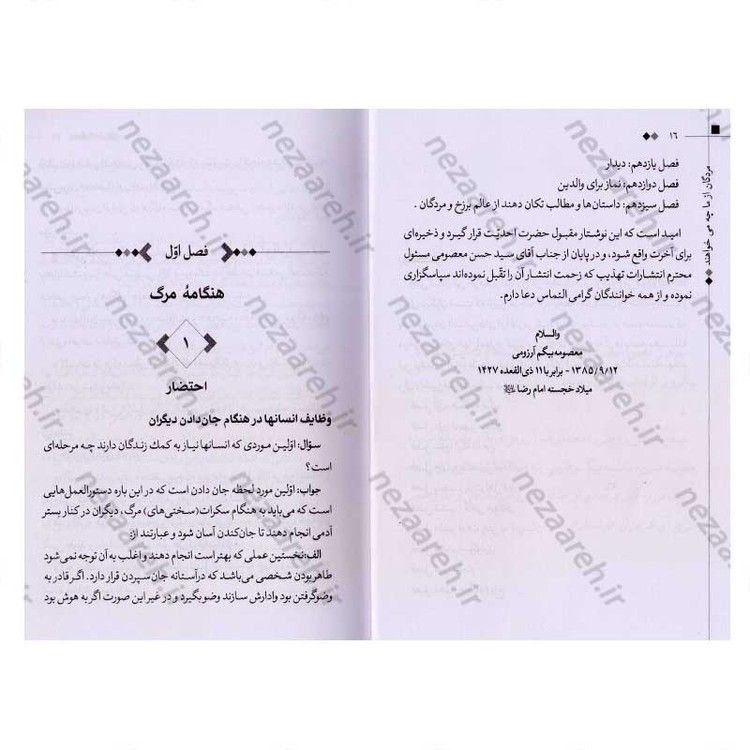 ۱۶
مردگان از ما چه می خواهند
فصل یازدهم: دیدار
فصل دوازدهم: نماز برای والدین
فصل سیزدهم: داستان‌ها و مطالب تکان دهنده از عالم برزخ و مردگان .
امید است که این نوشتار مقبول حضرت احدیّت قرار گیرد و ذخیره‌ای
برای آخرت واقع شود، و در پایان از جناب آقای سید حسن معصومی مسئول
محترم انتشارات تهذیب که زحمت انتشار آن را تقبّل نموده‌اند سپاسگزاری
نموده و از همه خوانندگان گرامی التماس دعا دارم.
والسلام
معصومه‌بیگم آرزومی
۱۳۸۵/۹/۱۲ - برابر با ۱۱ ذی‌القعده ۱۴۲۷
میلاد خجسته امام رضا
فصل اوّل
هنگامهٔ مرگ
۱
احتضار
وظایف انسانها در هنگام جان‌دادن دیگران
سؤال: اوّلین موردی که انسانها نیاز به کمك زندگان دارند چه مرحله‌ای
است؟
جواب: اوّلین مورد لحظه جان دادن است که در این باره دستورالعمل‌هایی
است که می‌باید به هنگام سکرات(سختی‌های) مرگ، دیگران در کنار بستر
آدمی انجام دهند تا جان‌کندن آسان شود و عبارتند از:
الف:نخستین عملی که بهتر است انجام دهند و اغلب به آن توجه نمی‌شود
طاهر بودن شخصی می‌باشد که در آستانه جان سپردن قرار دارد. اگر قادر به
وضو گرفتن بود وادارش سازند وضو بگیرد و در غیر این صورت اگر به هوش بود
nezaareh.ir